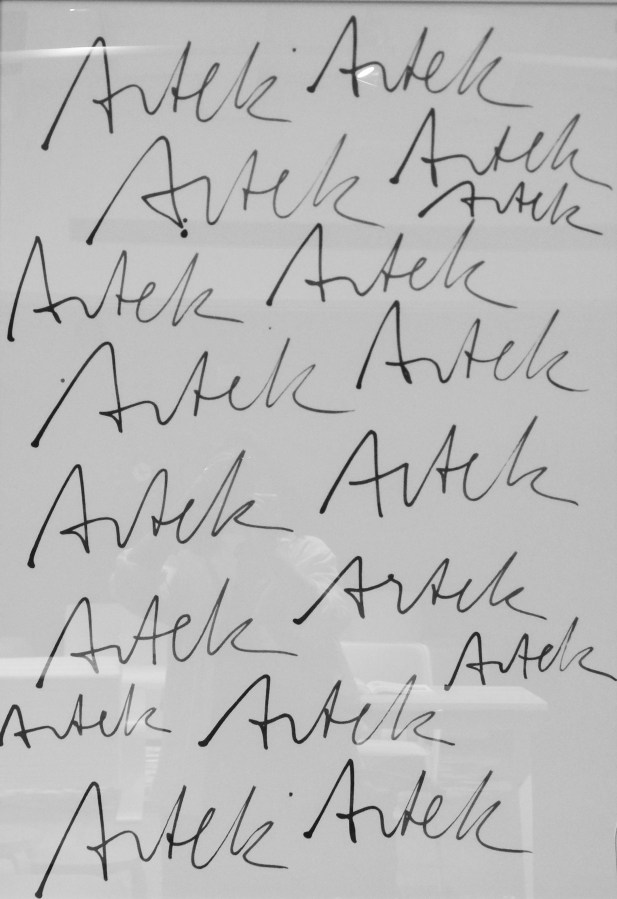 Artek Artek
Artek Artek
Artek
Artek Artek
Artek Artek
Artek Artek
Artek Artek
Artek
Artek Artek
Artek Artek